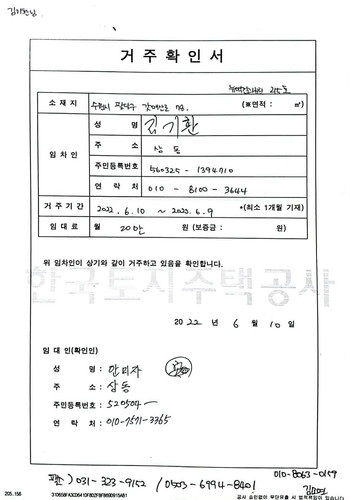 거 주 확 인 서
소 재 지 수원시 팔달구 갓매산로 78. (※면적 : ㎡)
임 차 인
성 명 김기환
주 소 상 동
주민등록번호 560325 - 1394710
연 락 처 010 - 8100 - 3644
거 주 기 간 2022. 6. 10 ~ 2023. 6. 9 *(최소 1개월 기재)
임 대 료 월 20만 원 (보증금 : 원)
위 임차인이 상기와 같이 거주하고 있음을 확인합니다.
한국토지주택공사
2022 년 6 월 10 일
임 대 인(확인인)
성 명 :
주 소 : 상동
주민등록번호 : 520504-
연 락 처 : 010-7571-3365
010-8063-0159
팩스) 031-323-9152 / 0503-6994-8401
205. 156
공사 승인없이 무단유출 시 법적책임이 있습니다